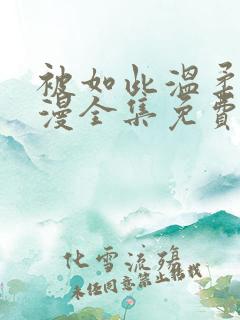 被如此溫柔
漫全集免費
化雪流殤
未经同意禁止转载